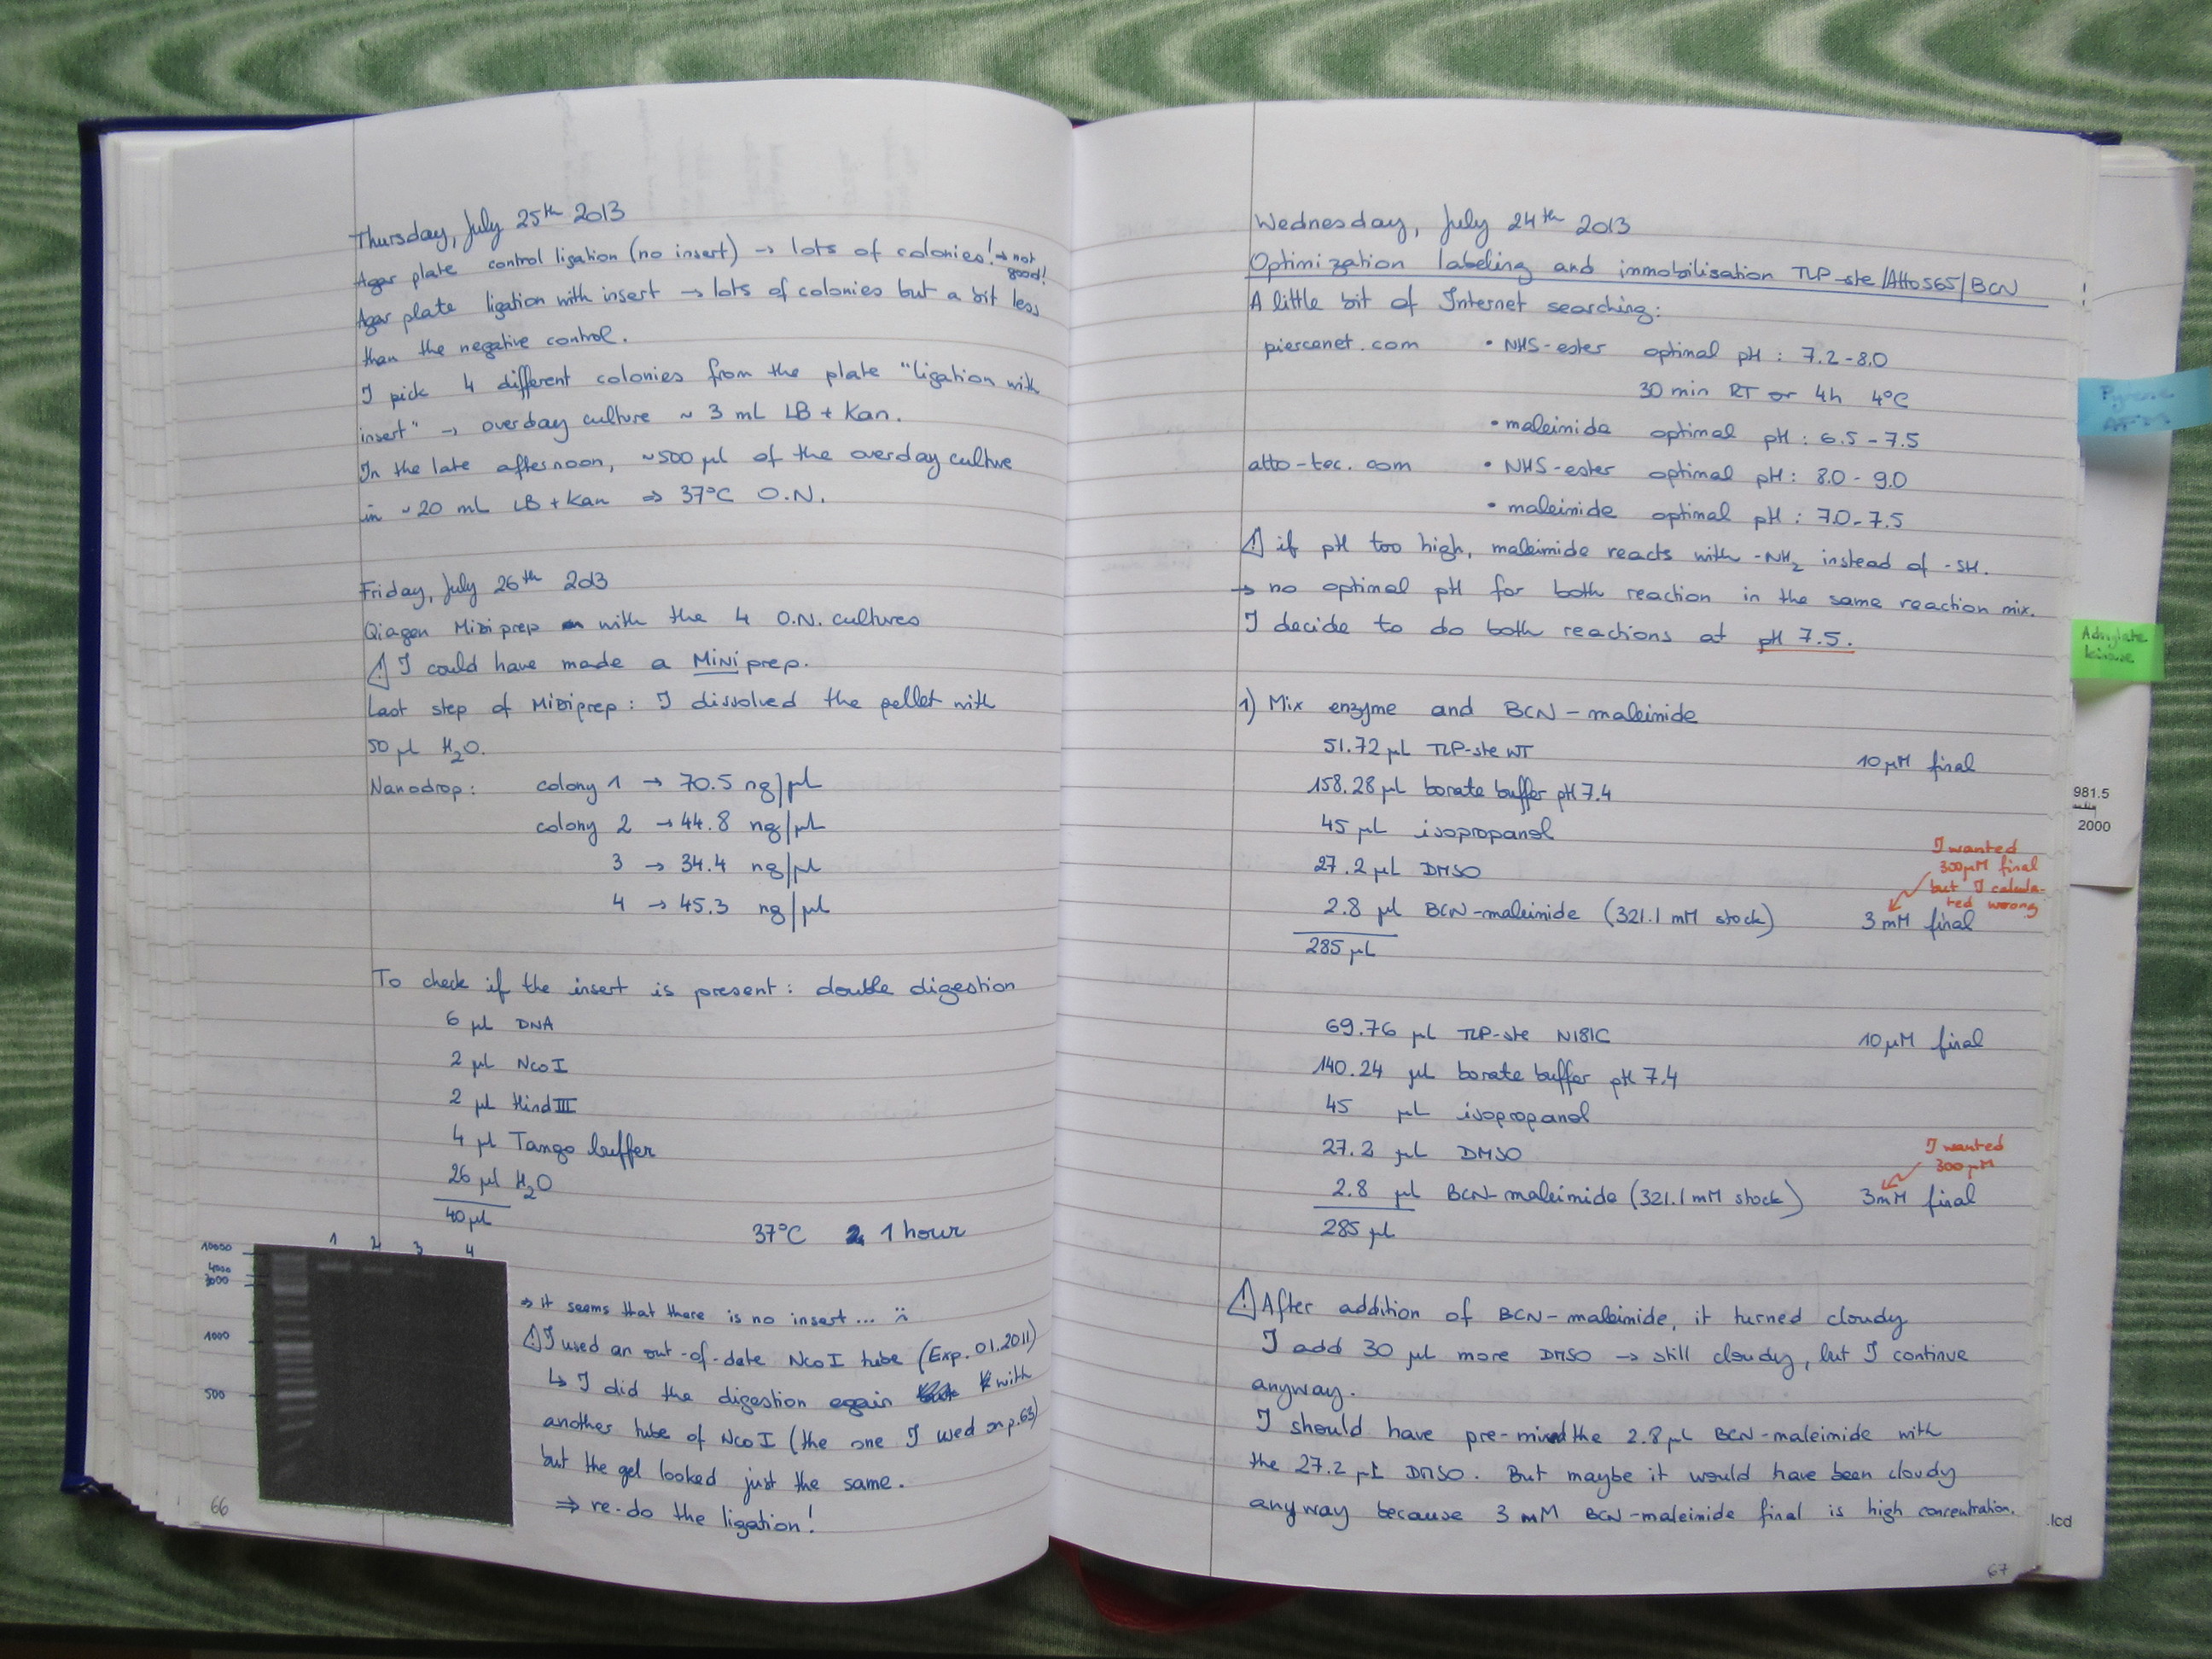 Thursday, July 25th 2013
Agar plate control ligation (no insert) → lots of colonies! → not good!
Agar plate ligation with insert → lots of colonies but a bit less
than the negative control.
I pick 4 different colonies from the plate "ligation with
insert" → overday culture ~ 3 mL LB + Kan.
In the late afternoon, ~500 µl of the overday culture
in ~20 mL LB + Kan ⇒ 37°C O.N.
Friday, July 26th 2013
Qiagen Midiprep with the 4 O.N. cultures
⚠ I could have made a MiNiprep.
Last step of Midiprep: I dissolved the pellet with
50 µl H2O.
Nanodrop: colony 1 → 70.5 ng/µl
colony 2 → 44.8 ng/µl
3 → 34.4 ng/µl
4 → 45.3 ng/µl
To check if the insert is present: double digestion
6 µl DNA
2 µl NcoI
2 µl HindIII
4 µl Tango buffer
26 µl H2O
40 µl
37°C 1 hour
1 2 3 4
10000
4000
3000
1000
500
⇒ it seems that there is no insert... :(
⚠ I used an out-of-date NcoI tube (Exp. 01.2011)
↳ I did the digestion again with
another tube of NcoI (the one I used on p.63)
but the gel looked just the same.
⇒ re-do the ligation!
66
Wednesday, July 24th 2013
Optimization labeling and immobilisation TLP-ste/Atto565/BCN
A little bit of Internet searching:
piercenet.com • NHS-ester optimal pH: 7.2-8.0
30 min RT or 4h 4°C
• maleimide optimal pH: 6.5-7.5
atto-tec.com • NHS-ester optimal pH: 8.0-9.0
• maleimide optimal pH: 7.0-7.5
⚠ if pH too high, maleimide reacts with -NH2 instead of -SH.
→ no optimal pH for both reaction in the same reaction mix.
I decide to do both reactions at pH 7.5.
1) Mix enzyme and BCN-maleimide
51.72 µL TLP-ste WT 10 µM final
158.28 µL borate buffer pH 7.4
45 µL isopropanol
27.2 µL DMSO
2.8 µl BCN-maleimide (321.1 mM stock) 3 mM final
I wanted
300µM final
but I calcula-
ted wrong
285 µL
69.76 µL TLP-ste N181C 10 µM final
140.24 µL borate buffer pH 7.4
45 µL isopropanol
27.2 µL DMSO
2.8 µl BCN-maleimide (321.1 mM stock) 3mM final
I wanted
300 µM
285 µl
⚠ After addition of BCN-maleimide, it turned cloudy
I add 30 µL more DMSO → still cloudy, but I continue
anyway.
I should have pre-mixed the 2.8 µL BCN-maleimide with
the 27.2 µL DMSO. But maybe it would have been cloudy
anyway because 3 mM BCN-maleimide final is high concentration.
67
Adenylate
kinase
981.5
2000
.lcd